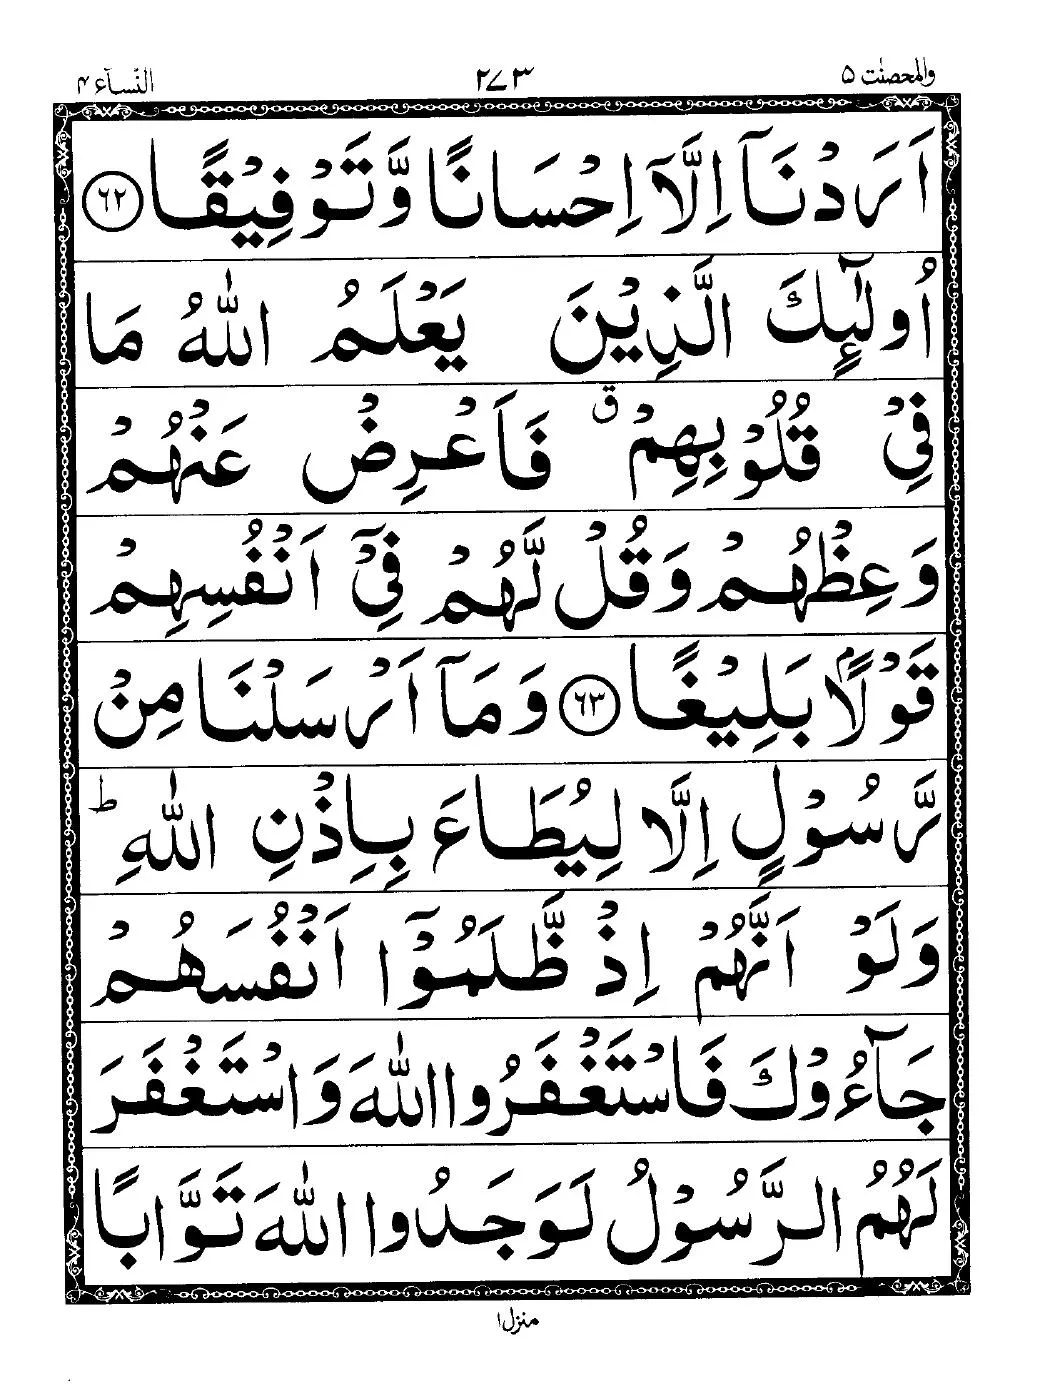 والمحصنٰت ۵ ۲۷۳ النّسآء ۴
اَرَدْنَاۤ اِلَّاۤ اِحْسَانًا وَّتَوْفِيْقًا ۶۲
اُولٰٓئِكَ الَّذِيْنَ يَعْلَمُ اللّٰهُ مَا
فِيْ قُلُوْبِهِمْ ۗ فَاَعْرِضْ عَنْهُمْ
وَعِظْهُمْ وَقُلْ لَّهُمْ فِيْۤ اَنْفُسِهِمْ
قَوْلًاۢ بَلِيْغًا ۶۳ وَمَاۤ اَرْسَلْنَا مِنْ
رَّسُوْلٍ اِلَّا لِيُطَاعَ بِاِذْنِ اللّٰهِ ؕ
وَلَوْ اَنَّهُمْ اِذْ ظَّلَمُوْۤا اَنْفُسَهُمْ
جَآءُوْكَ فَاسْتَغْفَرُوا اللّٰهَ وَاسْتَغْفَرَ
لَهُمُ الرَّسُوْلُ لَوَجَدُوا اللّٰهَ تَوَّابًا
منزل ۱